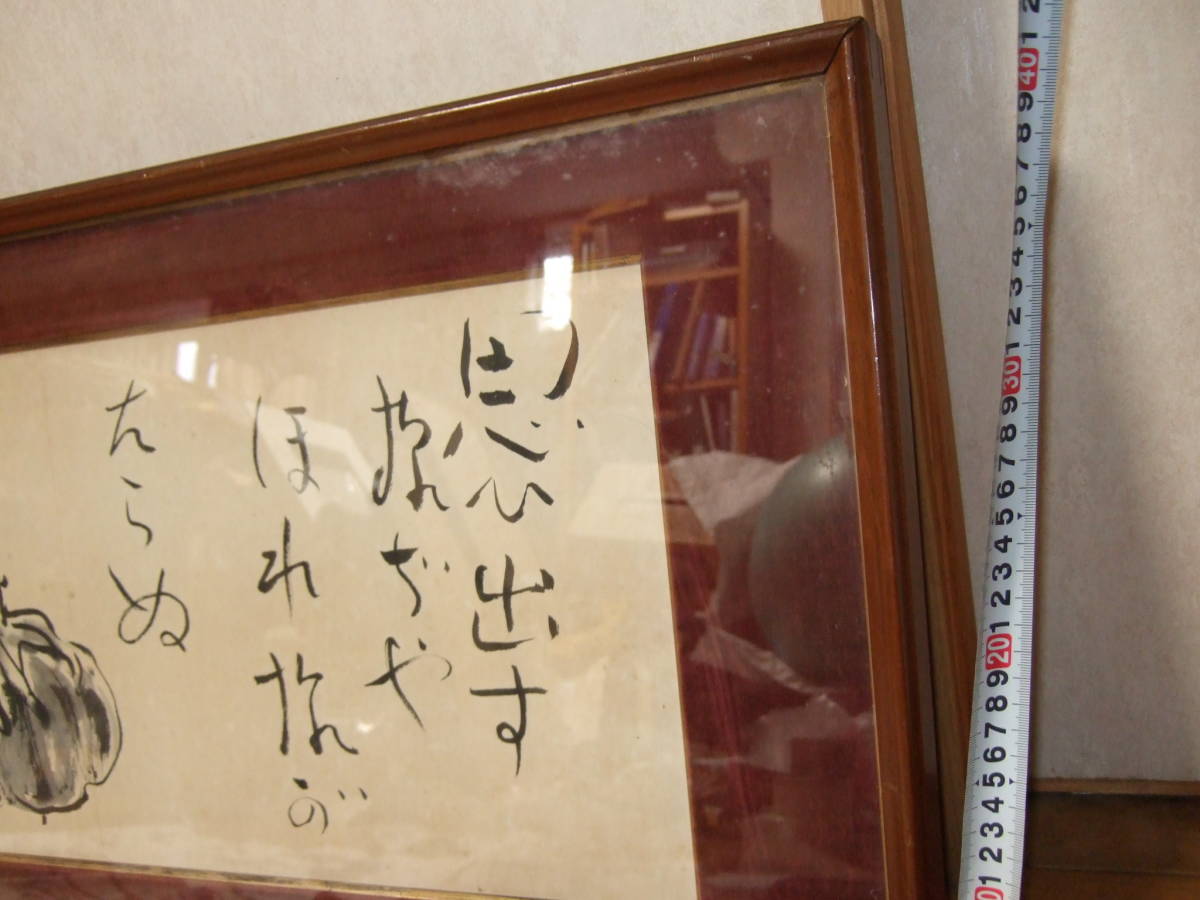 思ひ出す
様ぢや
ほれ様が
たらぬ
1 2 3 4 5 6 7 8 9 20 1 2 3 4 5 6 7 8 9 30 1 2 3 4 5 6 7 8 9 40 1 2